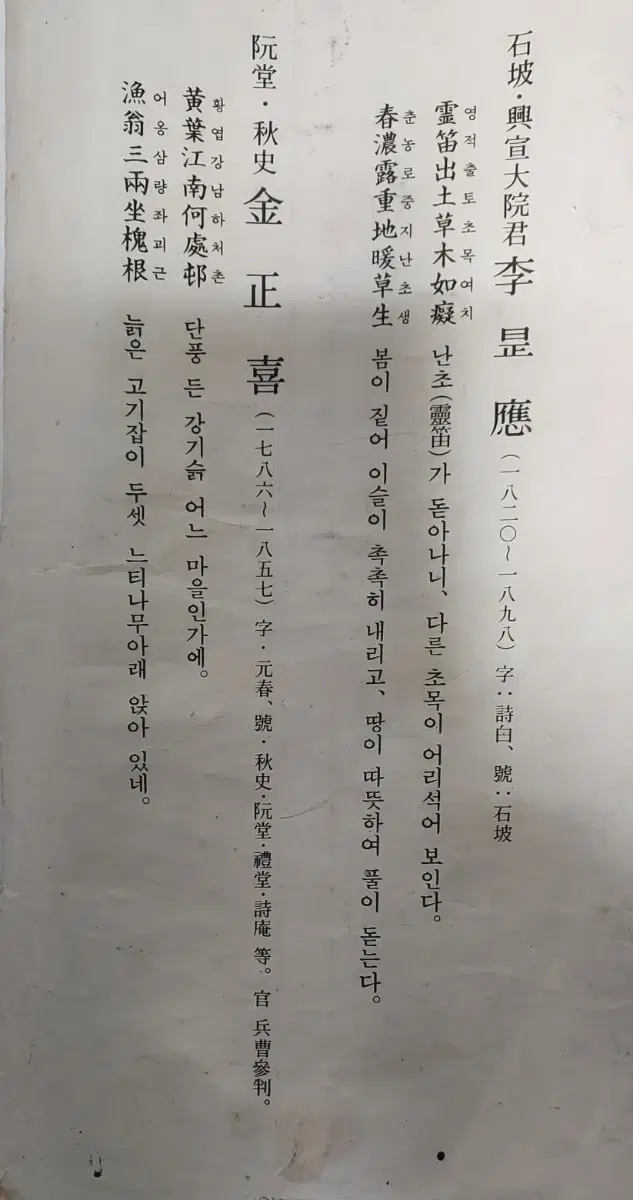 石坡・興宣大院君 李昰應 (一八二〇~一八九八) 字:詩白、號:石坡
영적출토초목여치
霊笛出土草木如癡 난초(靈笛)가 돋아나니、다른 초목이 어리석어 보인다。
춘농로중지난초생
春濃露重地暖草生 봄이 짙어 이슬이 촉촉히 내리고、땅이 따뜻하여 풀이 돋는다。
阮堂・秋史 金正喜 (一七八六~一八五七) 字・元春、號・秋史・阮堂・禮堂・詩庵 等。官 兵曹參判。
황엽강남하처촌
黃葉江南何處邨 단풍 든 강기슭 어느 마을인가에。
어옹삼량좌괴근
漁翁三兩坐槐根 늙은 고기잡이 두셋 느티나무아래 앉아 있네。